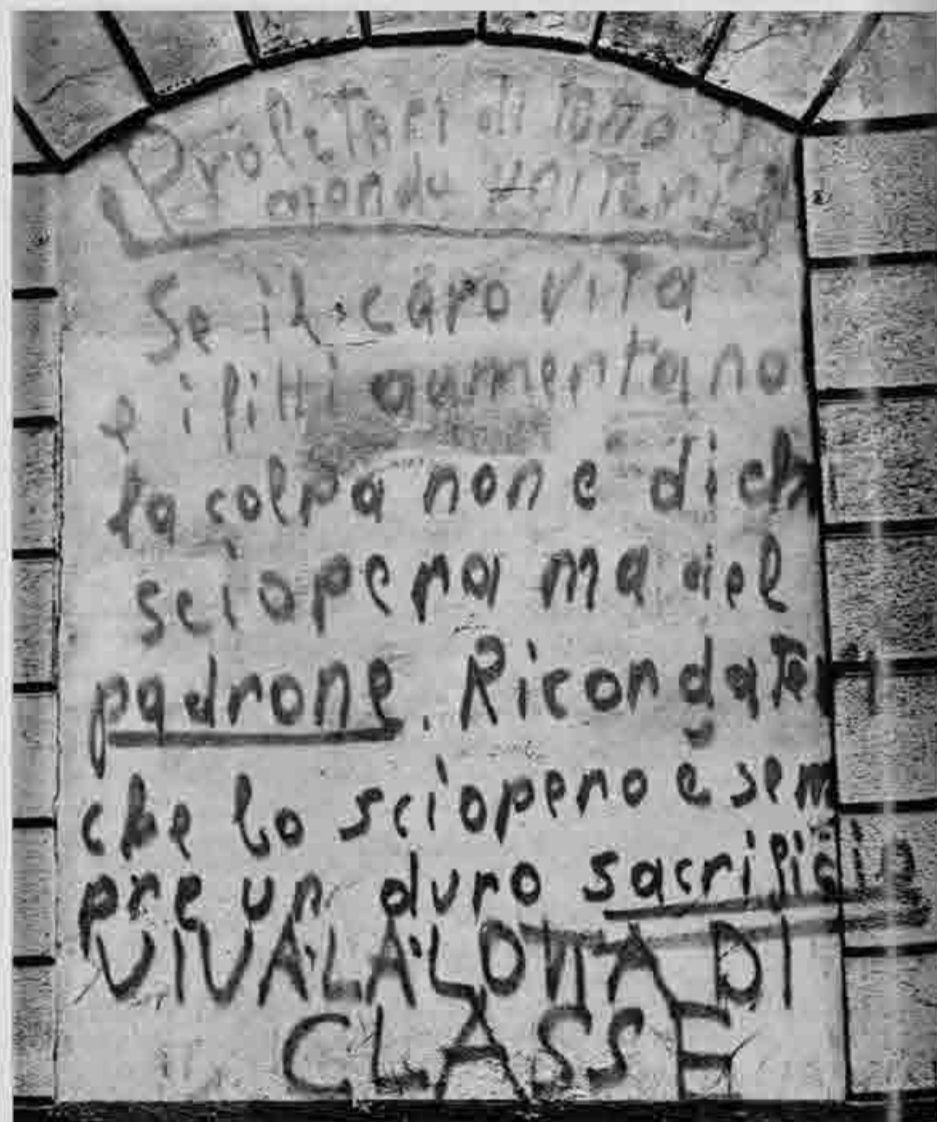 Proletari di tutto il
mondo unitevi
Se il caro vita
e i fitti aumentano
la colpa non e di ch
sciopera ma del
padrone. Ricordatevi
che lo sciopero è sem
pre un duro sacrificio
VIVA LA LOTTA DI
CLASSE